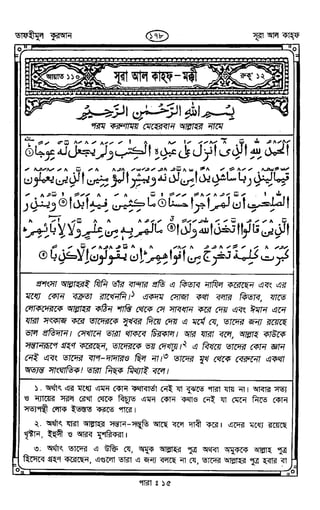 তাফহীমুল কুরআন
১৭৮
সূরা আল কাহফ
আয়াত ১১০
সূরা আল কাহফ-মক্কী
রুকূ' ১২
بِسْمِ اللهِ الرَّحْمٰنِ الرَّحِيْمِ
পরম করুণাময় মেহেরবান আল্লাহর নামে
اَلْحَمْدُ لِلّٰهِ الَّذِيْۤ اَنْزَلَ عَلٰى عَبْدِهِ الْكِتٰبَ وَلَمْ يَجْعَلْ لَّهٗ عِوَجًا ①
قَيِّمًا لِّيُنْذِرَ بَاْسًا شَدِيْدًا مِّنْ لَّدُنْهُ وَيُبَشِّرَ الْمُؤْمِنِيْنَ الَّذِيْنَ يَعْمَلُوْنَ
الصّٰلِحٰتِ اَنَّ لَهُمْ اَجْرًا حَسَنًا ② مَّاكِثِيْنَ فِيْهِ اَبَدًا ③ وَّيُنْذِرَ
الَّذِيْنَ قَالُوا اتَّخَذَ اللهُ وَلَدًا ④ مَا لَهُمْ بِهٖ مِنْ عِلْمٍ وَّلَا لِاٰبَآئِهِمْ
كَبُرَتْ كَلِمَةً تَخْرُجُ مِنْ اَفْوَاهِهِمْ اِنْ يَّقُوْلُوْنَ اِلَّا كَذِبًا ⑤
প্রশংসা আল্লাহরই যিনি তাঁর বান্দার প্রতি এ কিতাব নাযিল করেছেন এবং এর
মধ্যে কোন বক্রতা রাখেননি।১ একদম সোজা কথা বলার কিতাব, যাতে
লোকদেরকে আল্লাহর কঠিন শাস্তি থেকে সে সাবধান করে দেয় এবং ঈমান এনে
যারা সৎকাজ করে তাদেরকে সুখবর দিয়ে দেয় এ মর্মে যে, তাদের জন্য রয়েছে
ভাল প্রতিদান। সেখানে তারা থাকবে চিরকাল। আর যারা বলে, আল্লাহ কাউকে
সন্তানরূপে গ্রহণ করেছেন, তাদেরকে ভয় দেখায়।২ এ বিষয়ে তাদের কোন জ্ঞান
নেই এবং তাদের বাপ-দাদারও ছিল না।৩ তাদের মুখ থেকে বেরুনো একথা
অত্যন্ত সাংঘাতিক! তারা নিছক মিথ্যাই বলে।
১. অর্থাৎ এর মধ্যে এমন কোন কথাবার্তা নেই যা বুঝতে পারা যায় না। আবার সত্য
ও ন্যায়ের সরল রেখা থেকে বিচ্যুত এমন কোন কথাও নেই যা মেনে নিতে কোন
সত্যপন্থী লোক ইতস্তত করতে পারে।
২. অর্থাৎ যারা আল্লাহর সন্তান-সন্ততি আছে বলে দাবী করে। এদের মধ্যে রয়েছে
খৃষ্টান, ইহুদী ও আরব মুশরিকরা।
৩. অর্থাৎ তাদের এ উক্তি যে, অমুক আল্লাহর পুত্র অথবা অমুককে আল্লাহ পুত্র
হিসেবে গ্রহণ করেছেন, এগুলো তারা এ জন্য বলছে না যে, তাদের আল্লাহর পুত্র হবার বা
পারা ঃ ১৫